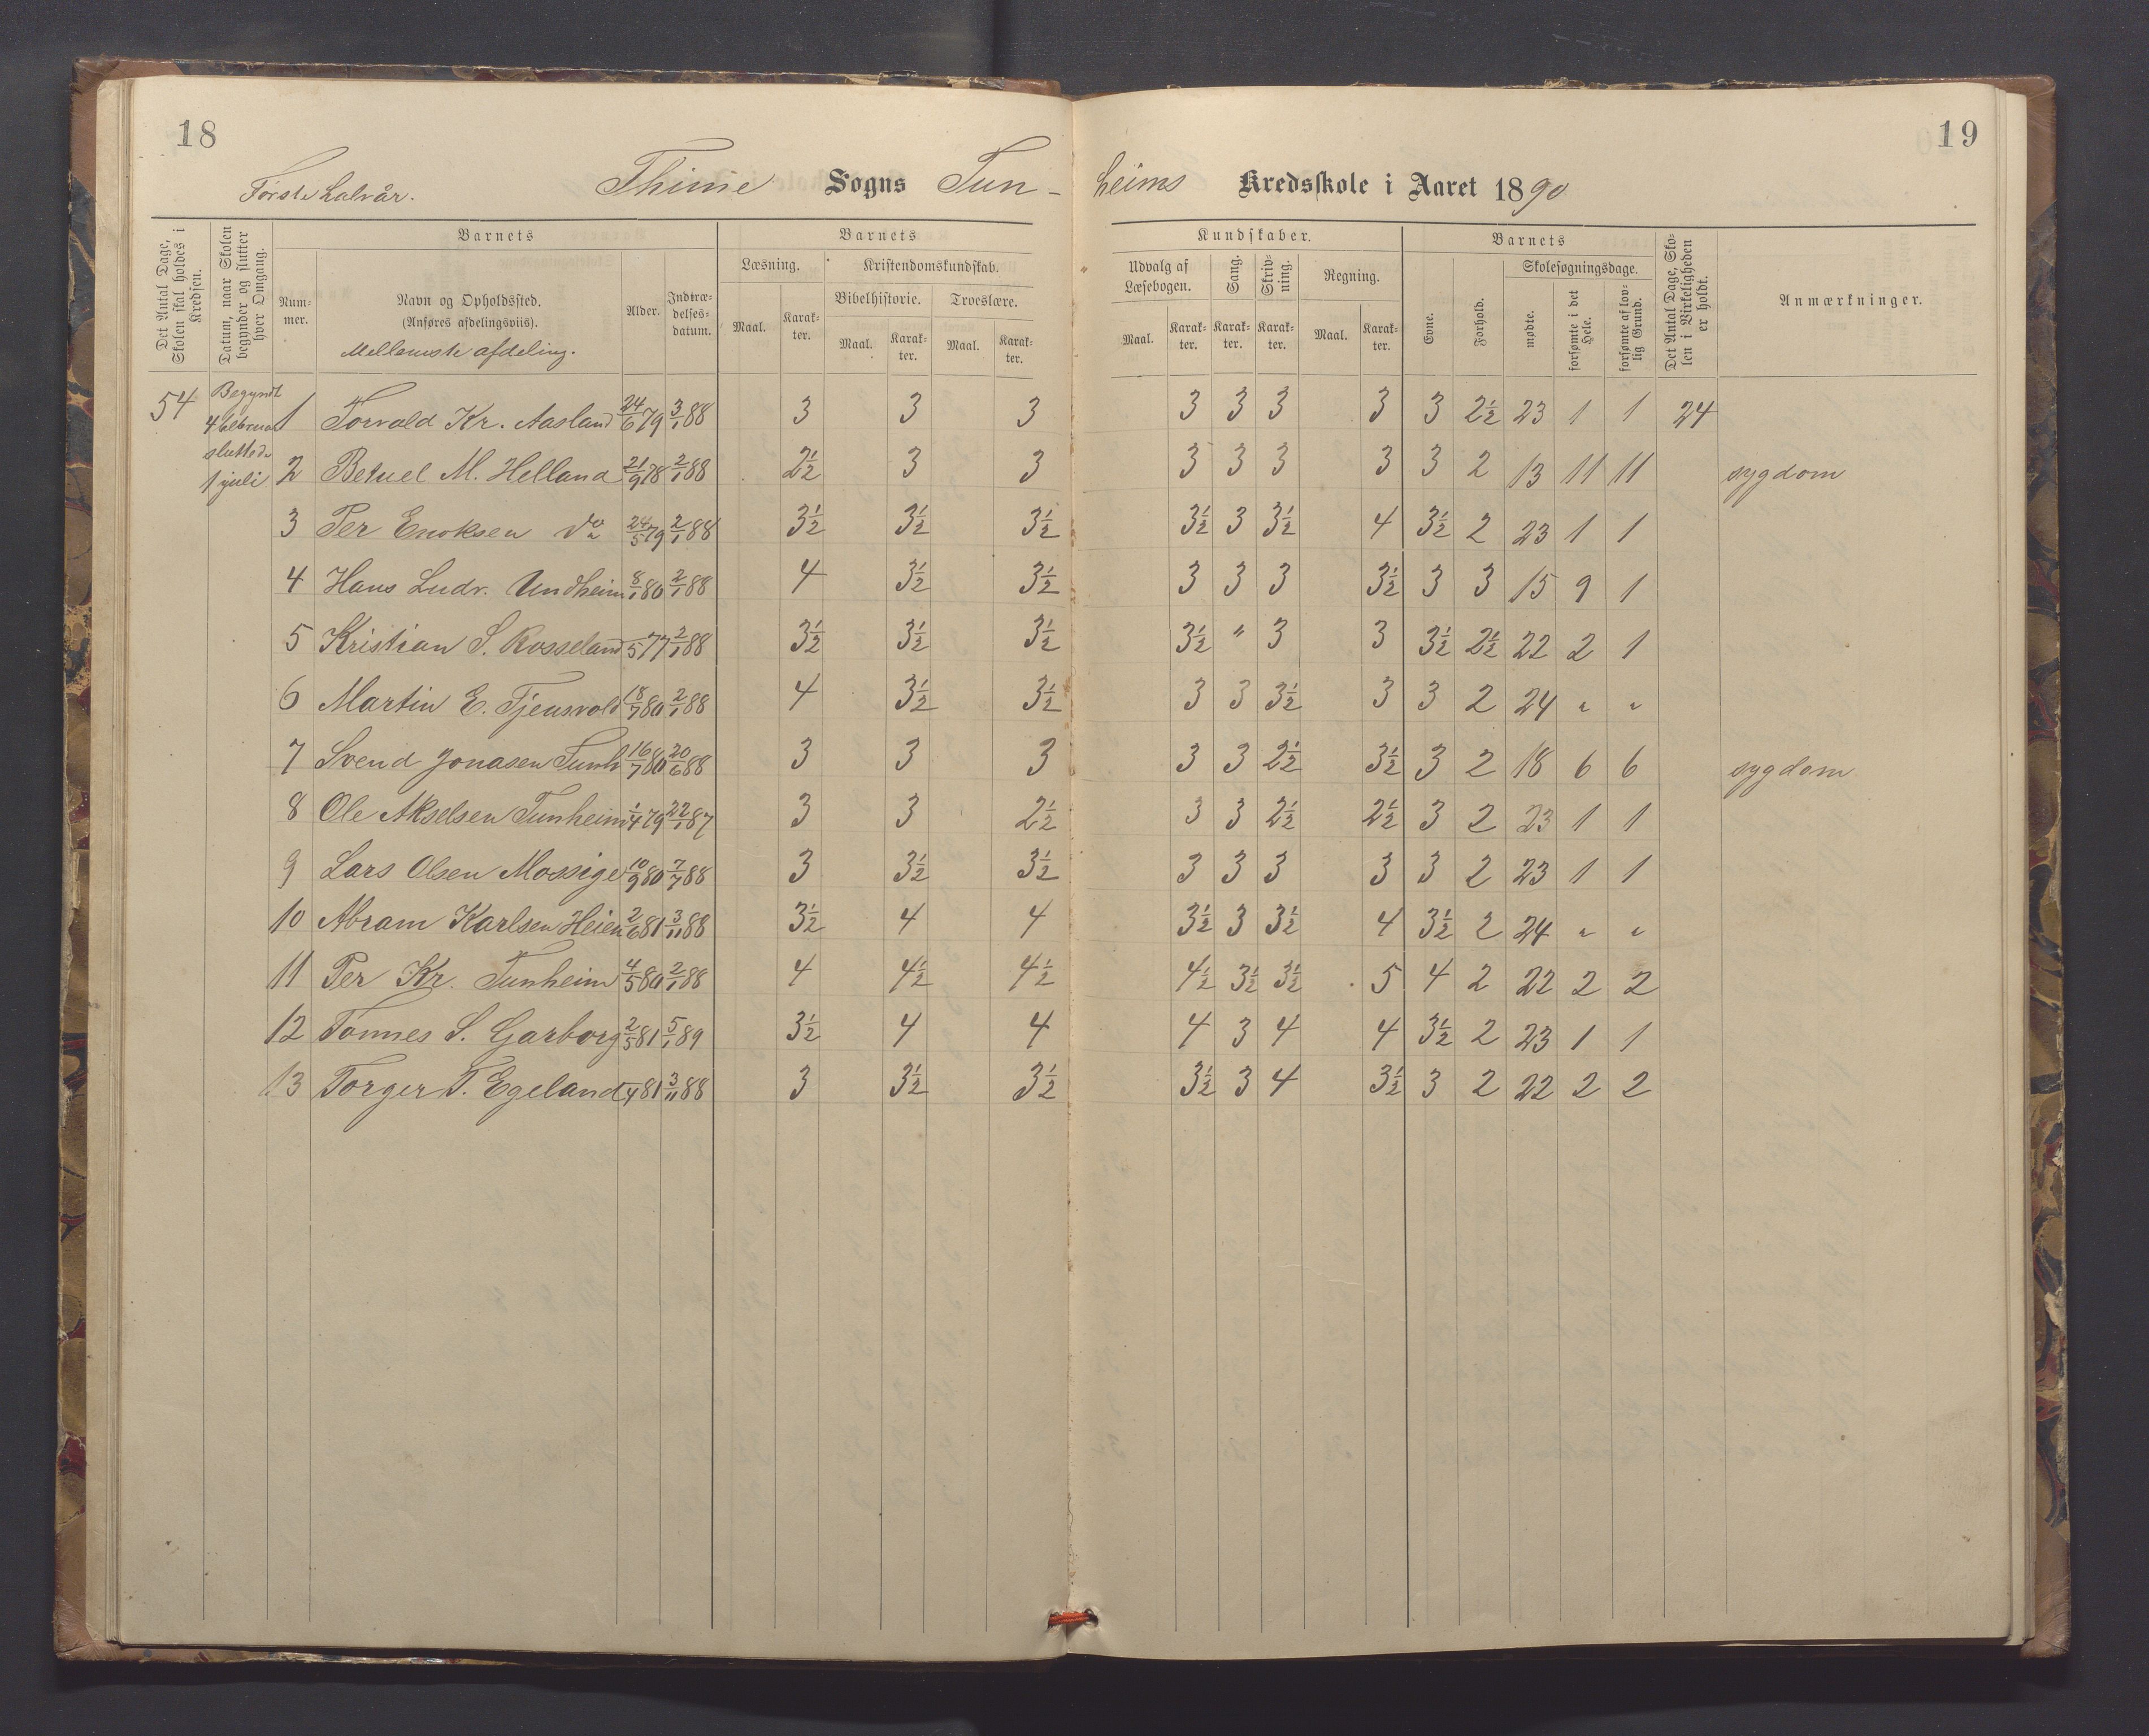 18
19
Første halvår. Thime Sogns Tun- heims Kredsskole i Aaret 1890
Det Antal Dage, Skolen skal holdes i Kredsen.
Datum, naar Skolen begynder og slutter hver Omgang.
Barnets
Num-mer.
Navn og Opholdssted.
(Anføres afdelingsviis).
Mellemste afdeling.
Alder.
Indtræ-delses-datum.
Barnets Kundskaber.
Læsning.
Maal. Karak-ter.
Kristendomskundskab.
Bibelhistorie. Troeslære.
Maal. Karak-ter. Maal. Karak-ter.
Udvalg af Læsebogen.
Maal. Karak-ter.
Sang. Karak-ter.
Skriv-ning. Karak-ter.
Regning.
Maal. Karak-ter.
Barnets
Evne. Forhold.
Skolesøgningsdage.
mødte. forsømte i det Hele. forsømte af lov-lig Grund.
Det Antal Dage, Sko-len i Virkeligheden er holdt.
Anmærkninger.
54 Begyndt 4 februar sluttede 1 juli
1 Torvald Kr. Aasland 24/6 79 3/1 88 3 3 3 3 3 3 3 3 2½ 23 1 1 24
2 Betuel M. Helland 21/9 78 2/1 88 2½ 3 3 3 3 3 3 3 2 13 11 11 sygdom
3 Per Enoksen do 24/5 79 2/1 88 3½ 3½ 3½ 3½ 3 3½ 4 3½ 2 23 1 1
4 Hans Ludv. Undheim 8/1 80 2/1 88 4 3½ 3½ 3 3 3 3½ 3 3 15 9 1
5 Kristian S. Rosseland /5 77 2/1 88 3½ 3½ 3½ 3½ " 3 3 3½ 2½ 22 2 1
6 Martin E. Tjensvold 18/7 80 2/1 88 4 3½ 3½ 3 3 3½ 3 3 2 24 " "
7 Svend Jonasen Tunh 16/7 80 20/6 88 3 3 3 3 3 2½ 3½ 3 2 18 6 6 sygdom
8 Ole Akselsen Tunheim 1/4 79 22/1 87 3 3 2½ 3 3 2½ 2½ 3 2 23 1 1
9 Lars Olsen Mossige 10/9 80 7/7 88 3 3½ 3½ 3 3 3 3 3 2 23 1 1
10 Abram Karlsen Heien 2/6 81 3/11 88 3½ 4 4 3½ 3 3½ 4 3½ 2 24 " "
11 Per Kr. Tunheim 4/5 80 2/1 88 4 4½ 4½ 4½ 3½ 3½ 5 4 2 22 2 2
12 Tønnes S. Garborg 2/5 81 5/1 89 3½ 4 4 4 3 4 4 3½ 2 23 1 1
13 Torger T. Egeland /4 81 3/11 88 3 3½ 3½ 3½ 3 4 3½ 3 2 22 2 2